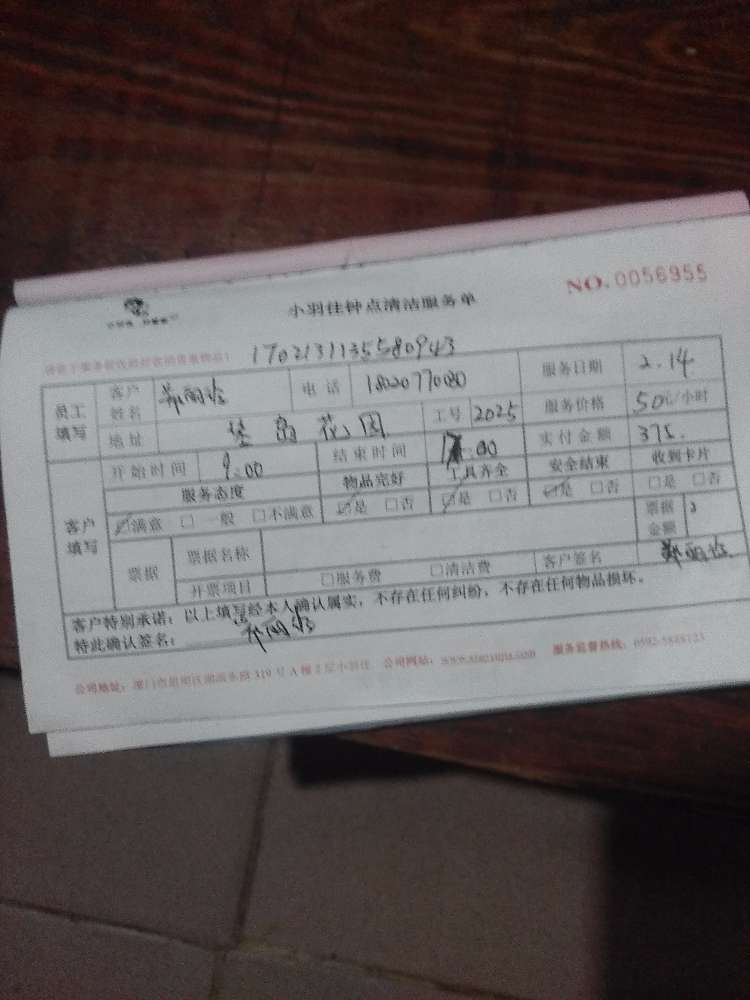 小羽佳钟点清洁服务单
NO.0056955
1702131135580943
员工填写 客户姓名 郑丽珍 电话 1802077080 服务日期 2.14
地址 花园 工号 2025 服务价格 50元/小时
客户填写 开始时间 9:00 结束时间 :00 实付金额 375.
服务态度 物品完好 工具齐全 安全结束 收到卡片
☑满意 □一般 □不满意 ☑是 □否 ☑是 □否 ☑是 □否 □是 □否
票据 票据名称 票据金额
开票项目 □服务费 □清洁费 客户签名 郑丽珍
客户特别承诺:以上填写经本人确认属实,不存在任何纠纷,不存在任何物品损坏。
特此确认签名: 郑丽珍
公司地址:厦门市 319号A幢2层小羽佳 公司网站: 服务监督热线: